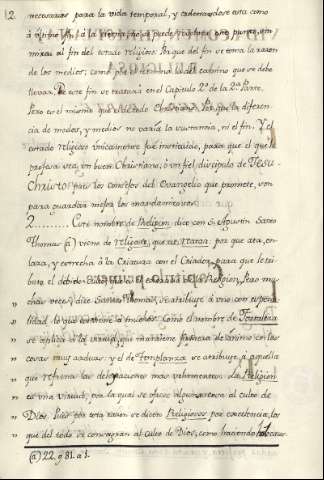 12. necesarias para la vida temporal, y ordenandose esta como
à ultimo fin à la eterna, no se puede
al fin del estado religioso. Porque del fin se toma la razon
de los medios, como por el termino la del camino que se debe
llevar. De este fin se tratarà en el Capitulo 2º de la 2ª Parte.
Pero es el mismo que el de todo Christiano. Porque la diferen
cia de modos, y medios no varìa la sustancia, ni el fin. Y el
estado religioso unicamente fue instituido, para que el que lo
profesa sea un buen Christiano, ò un fiel discipulo de Jesu
Christo: pues los consejos del Evangelio que promete, son
para guardar mejor los mandamientos.
2........ Este nombre de Religion, dice con S. Agustin Santo
Thomas (a) viene de religare, que es atar: por que ata, en
laza, y estrecha à la Criatura con el Criador, para que le tri
buta el debido culto, que es el acto de la Religion. Pero mu
chas veces, dice Santo Thomas, se atribuye à uno con especia
lidad lo que conviene à muchos. Como el nombre de Fortaleza
se aplica à la virtud, que mantiene firmeza de animo en las
cosas muy arduas: y el de Templanza se atribuye à aquella
que refrena las delectaciones mas vehementes. La Religion
es una virtud, con la qual se ofrece alguna cosa al culto de
Dios. Pues con esta razon se dicen Religiosos por excelencia, los
que del todo se consagran al culto de Dios, como haciendo holocaus
(a) 22. q 81. a 1.